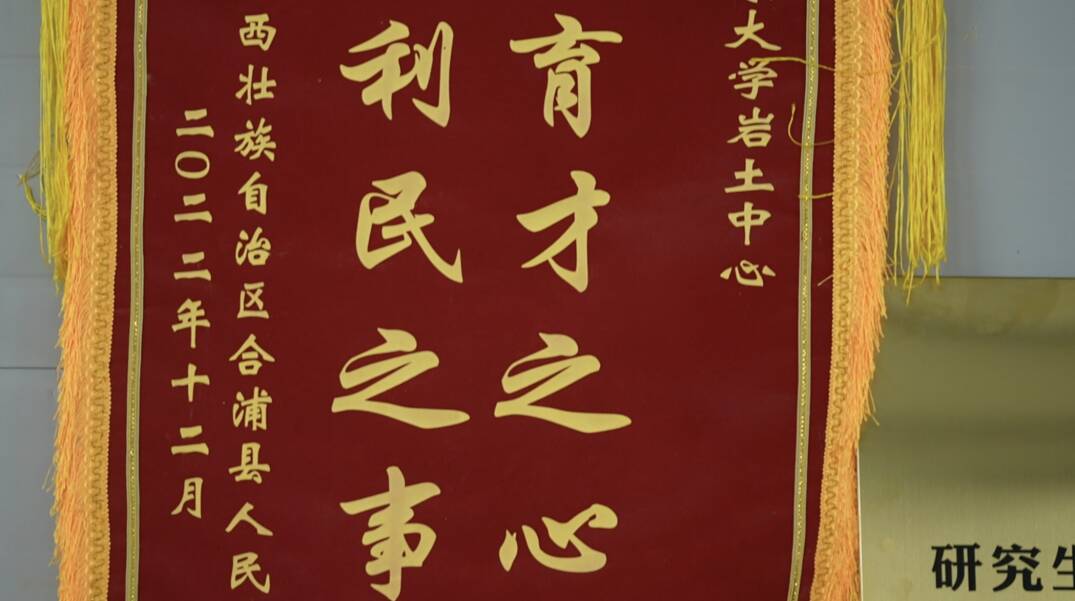 大学岩土中心
育才之心
利民之事
西壮族自治区合浦县人民
二〇二二年十二月
研究生